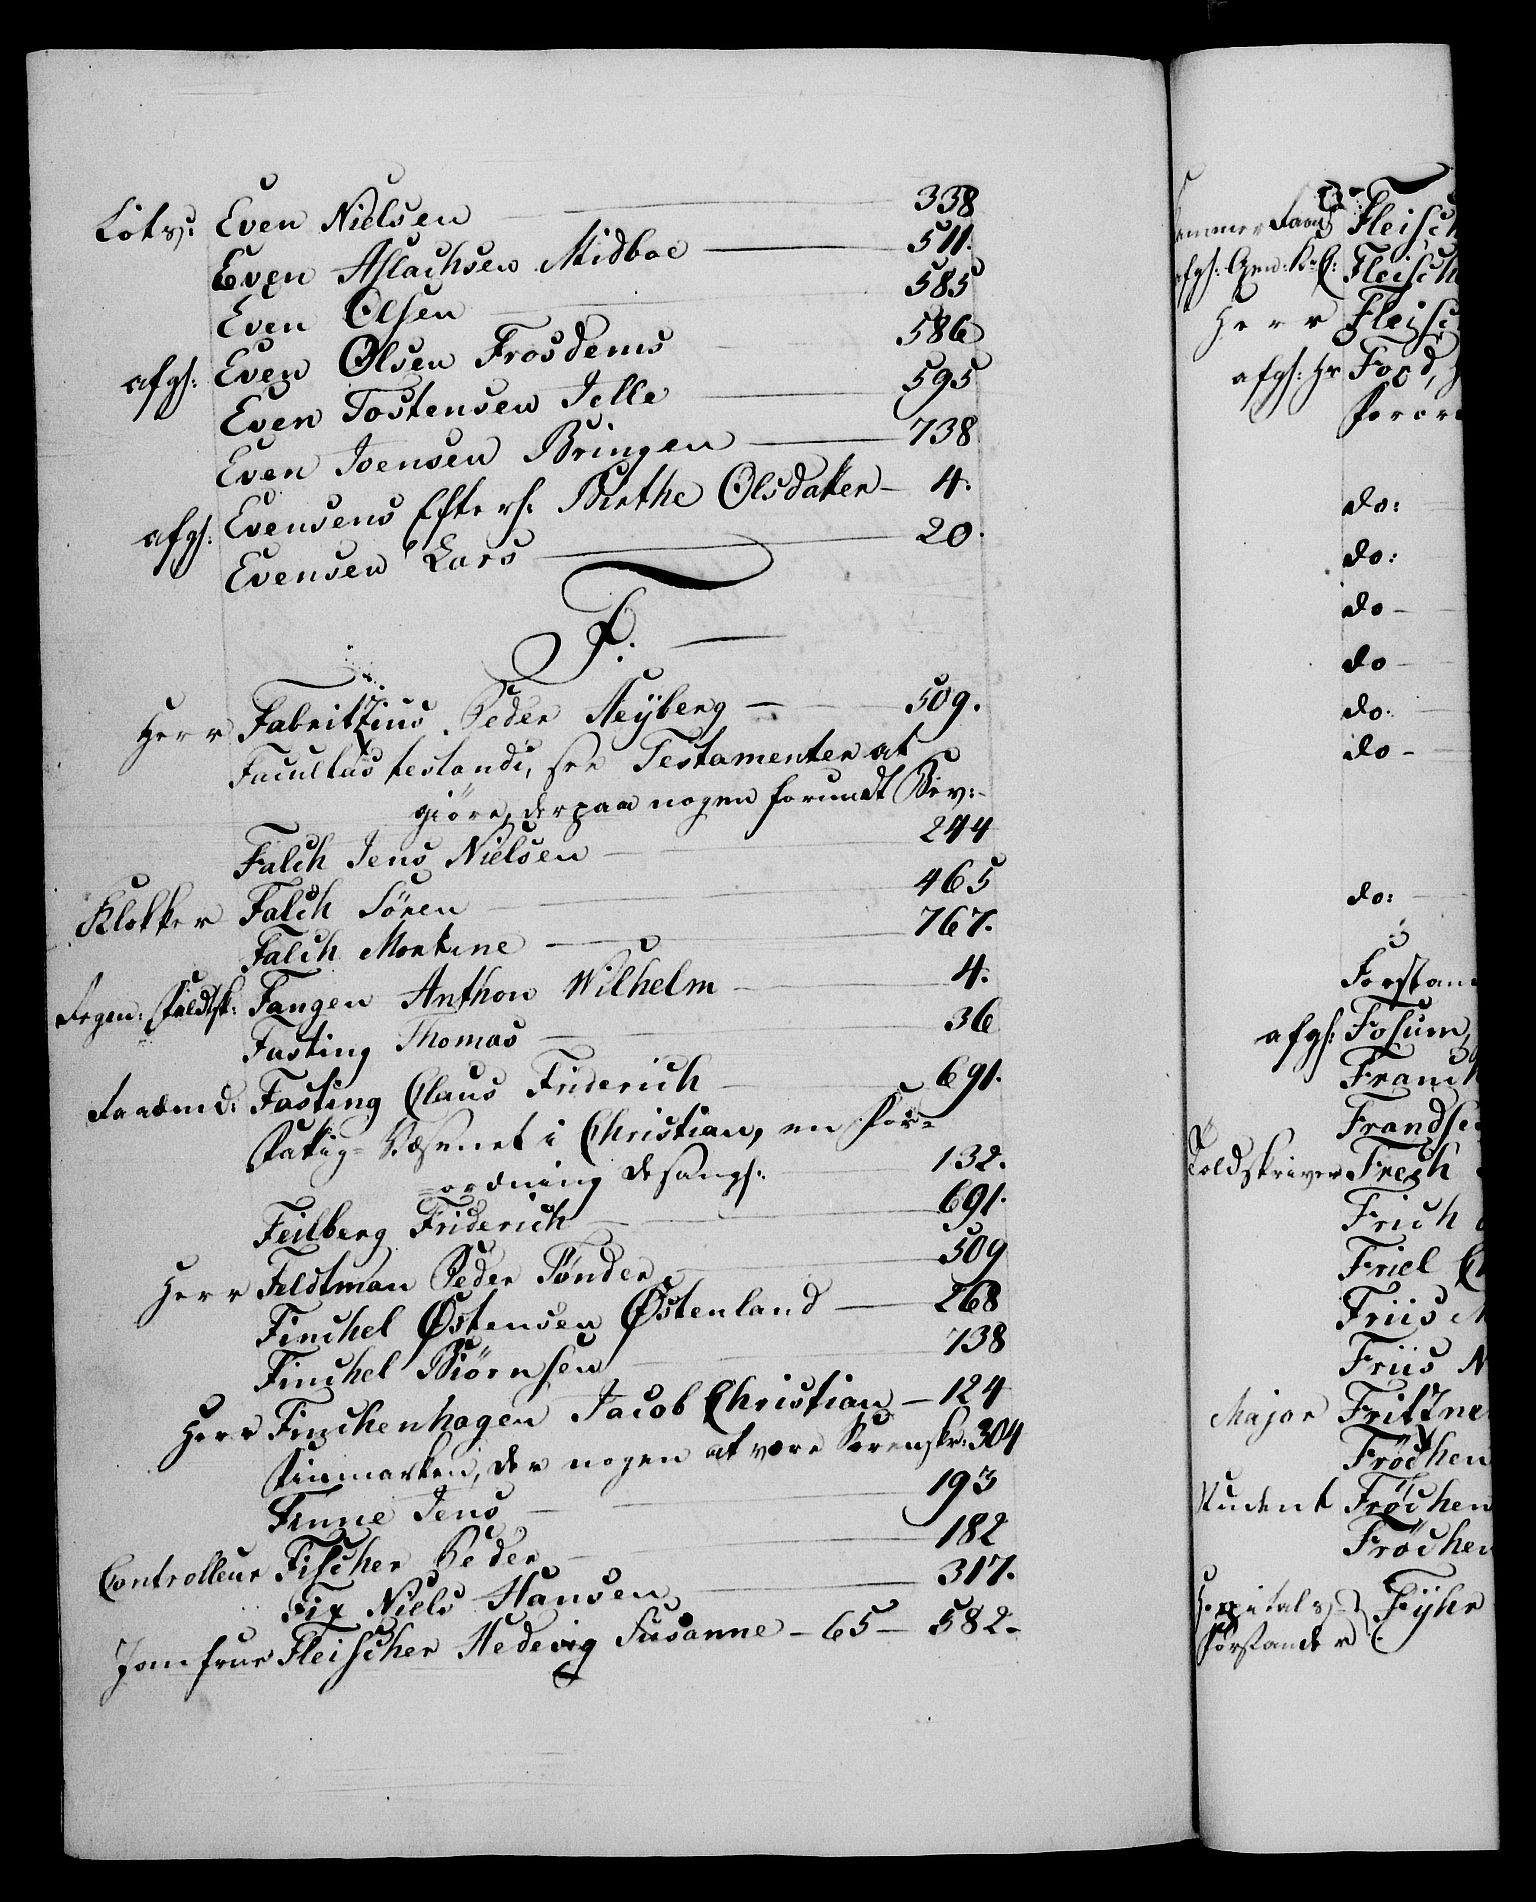 Lots: Even Nielsen 338
Even Aslachsen Midboe 511.
Even Olsen 585
afgh: Even Olsen Frosdems 586
Even Tostensen Jelle 595
Even Joensen Bringen 738
afgh. Evensens Efterh: Birthe Olsdatter 4.
Evensen Lars 20.
F.
Herr Fabritzius Peder Neyberg 509.
Facultas testandi, see Testamenter at
giöre, derpaa nogen forundt Bev:
Falch Jens Nielsen 244
Klokker Falch Sören 465
Falch Mortine 767.
Regim: Feldtsk: Fangen Anthon Wilhelm 4.
Fasting Thomas 36
Raadmd: Fasting Claus Friderich 691.
Fattig-Væsenet i Christian, en For=
=ordning desangh: 132.
Feilberg Friderich 691.
Herr Feldtman Peder Tönder 509
Finchel Østensen Østenland 268
Finchel Biörnsen 738
Herr Finckenhagen Jacob Christian 124
Finmarken, der nogen at være Sorenskr: 304
Finne Jens 193
Controlleur Fischer Peder 182
Fix Niels Hansen 317.
Jomfrue Fleischer Hedevig Susanne - 65 - 582.
Kammer Raad Fleisch
afgh: Gen: Fleisch
Herr Fleisc
afgh: Hr Ford,
Foror
do:
do:
do
do
do.
do
do:
Forstan
afgh: Fosum,
Franck
Frandse
Toldskriver Fresh
Frich
Friel
Friis M
Friis N
Major Fritzne
Fröchen
Student Fröchen
Fröchen
Hospitals Fyhr
Forstander